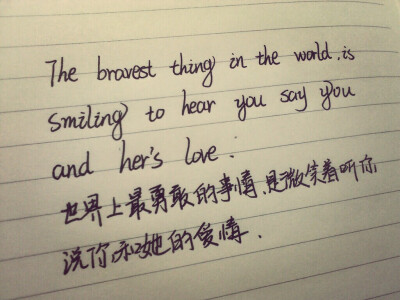 The bravest thing in the world, is
smiling to hear you say you
and her's love.
世界上最勇敢的事情,是微笑着听你
说你和她的爱情.